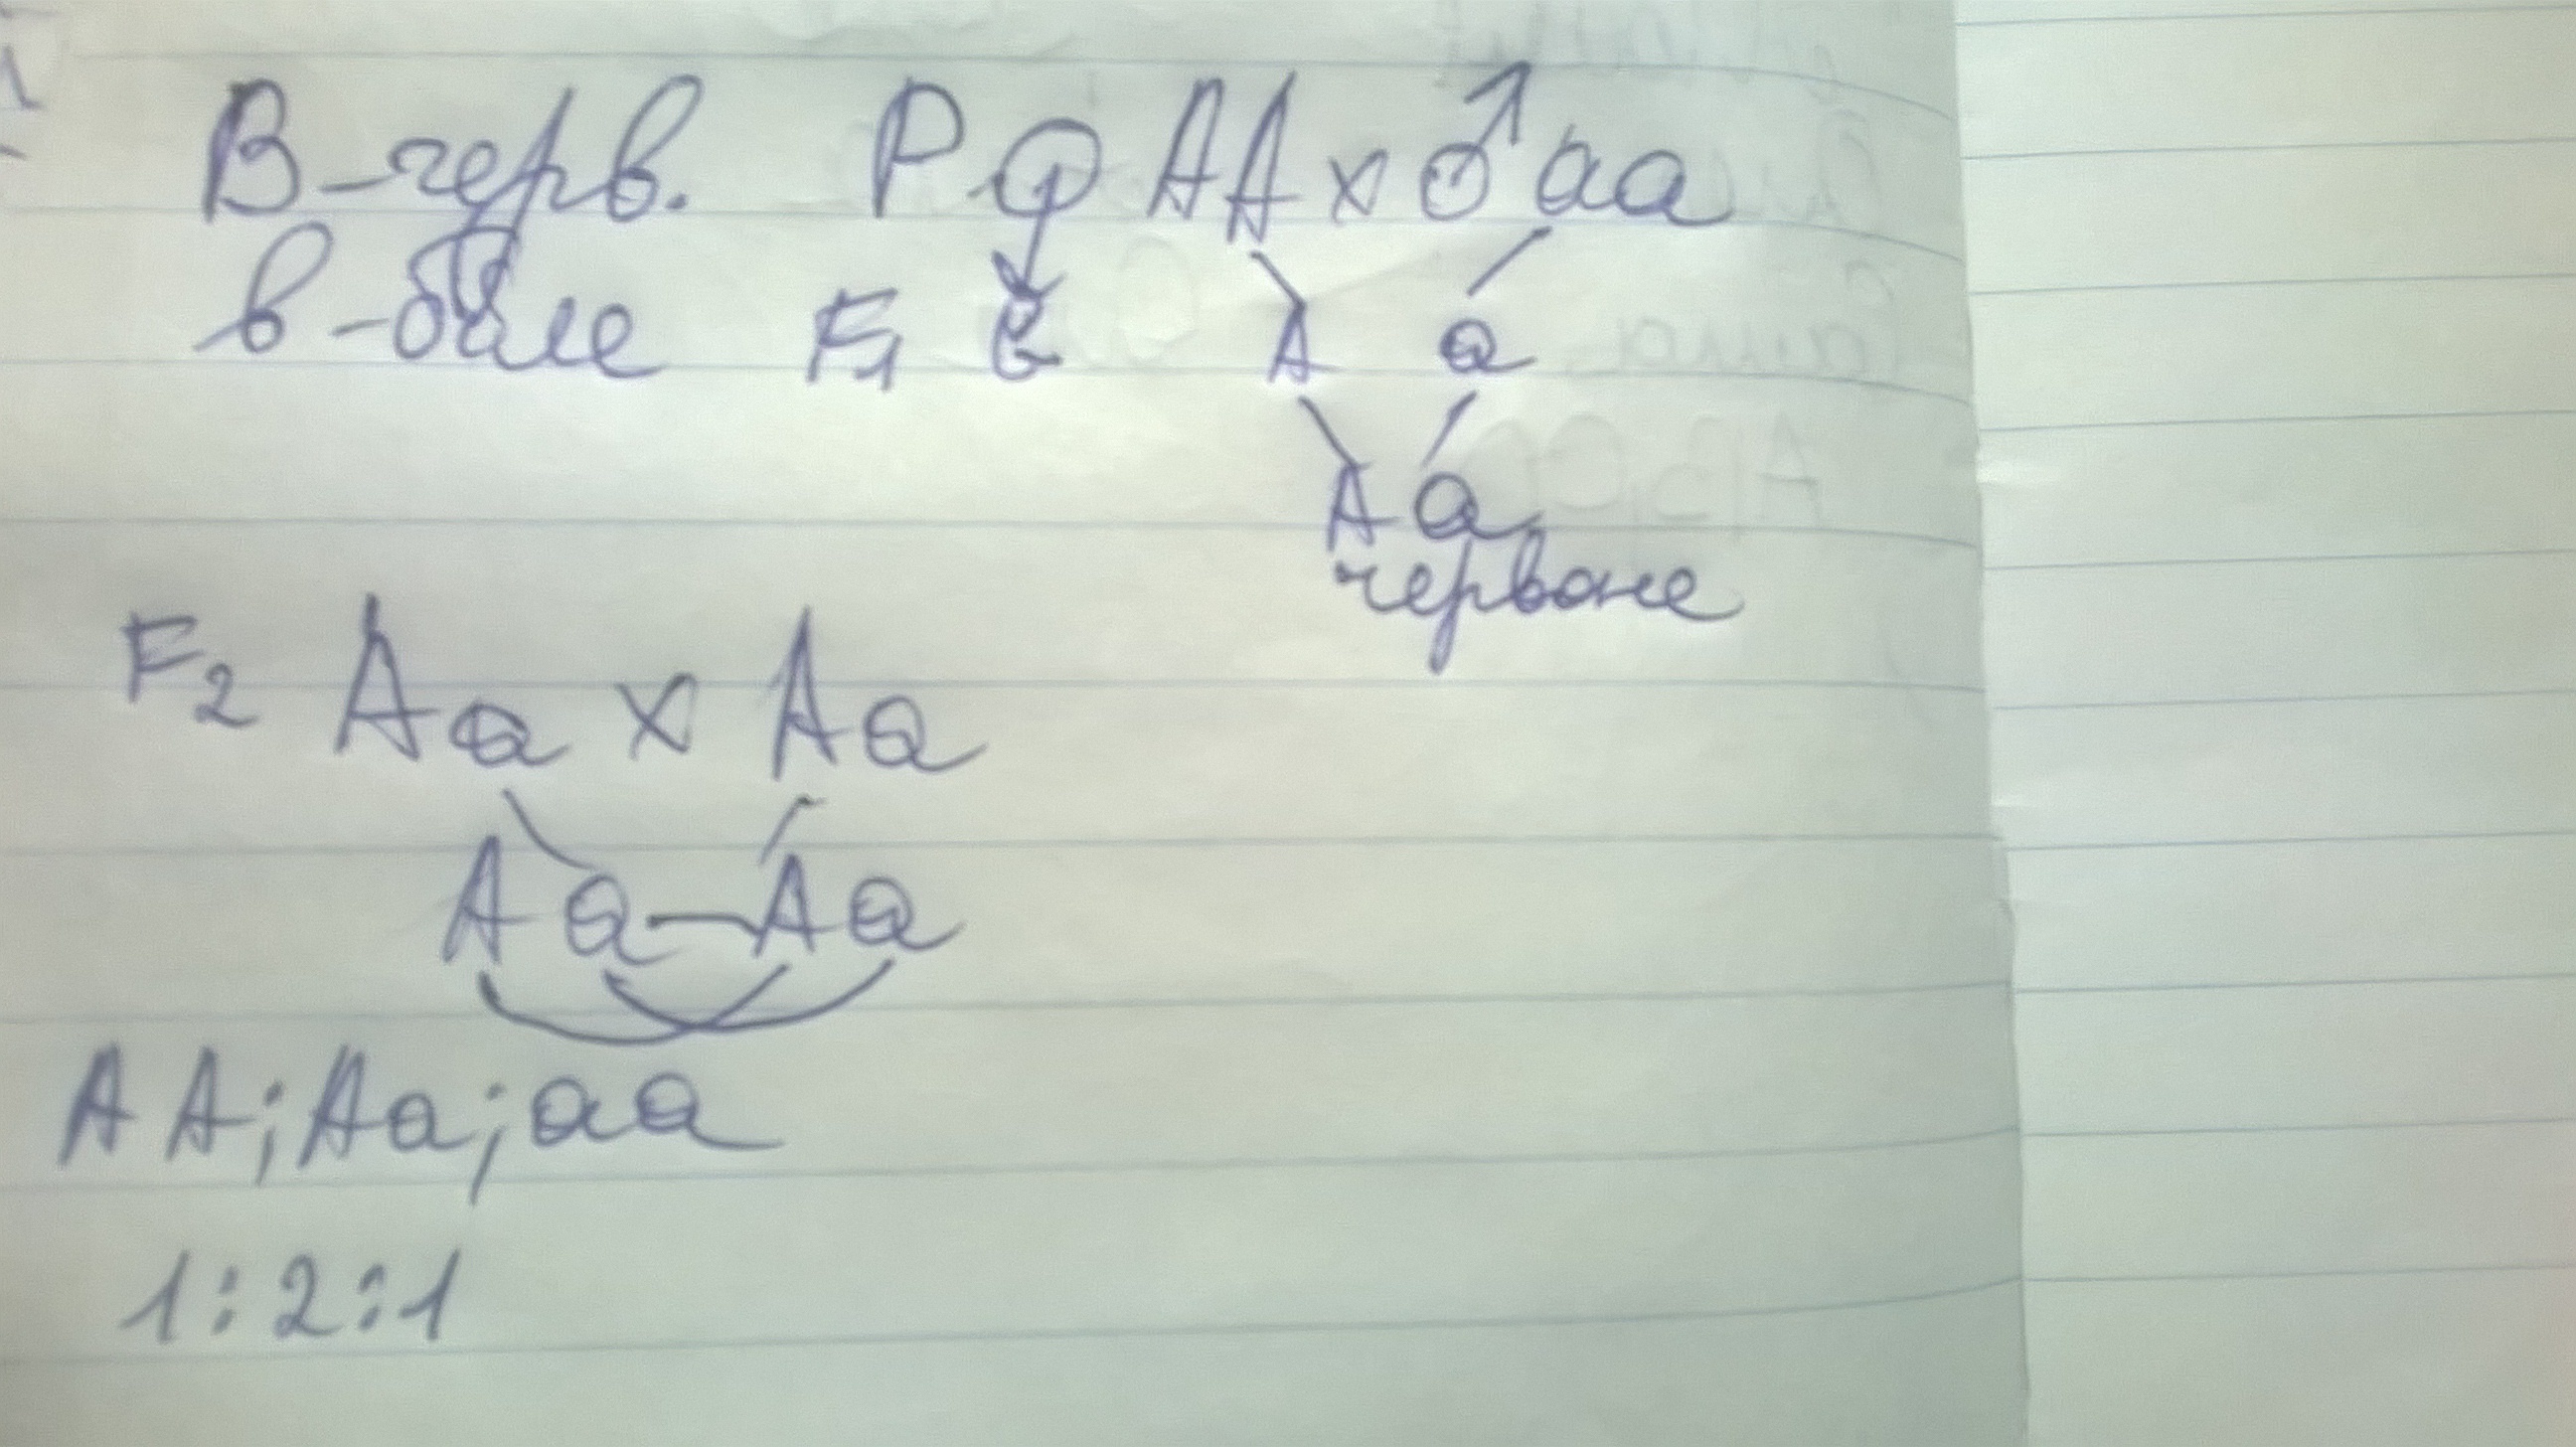 В-черв. P ♀ AA x ♂ aa
в-біле F1 A a
Aa
червоне
F2 Aa x Aa
A a A a
AA; Aa; aa
1:2:1